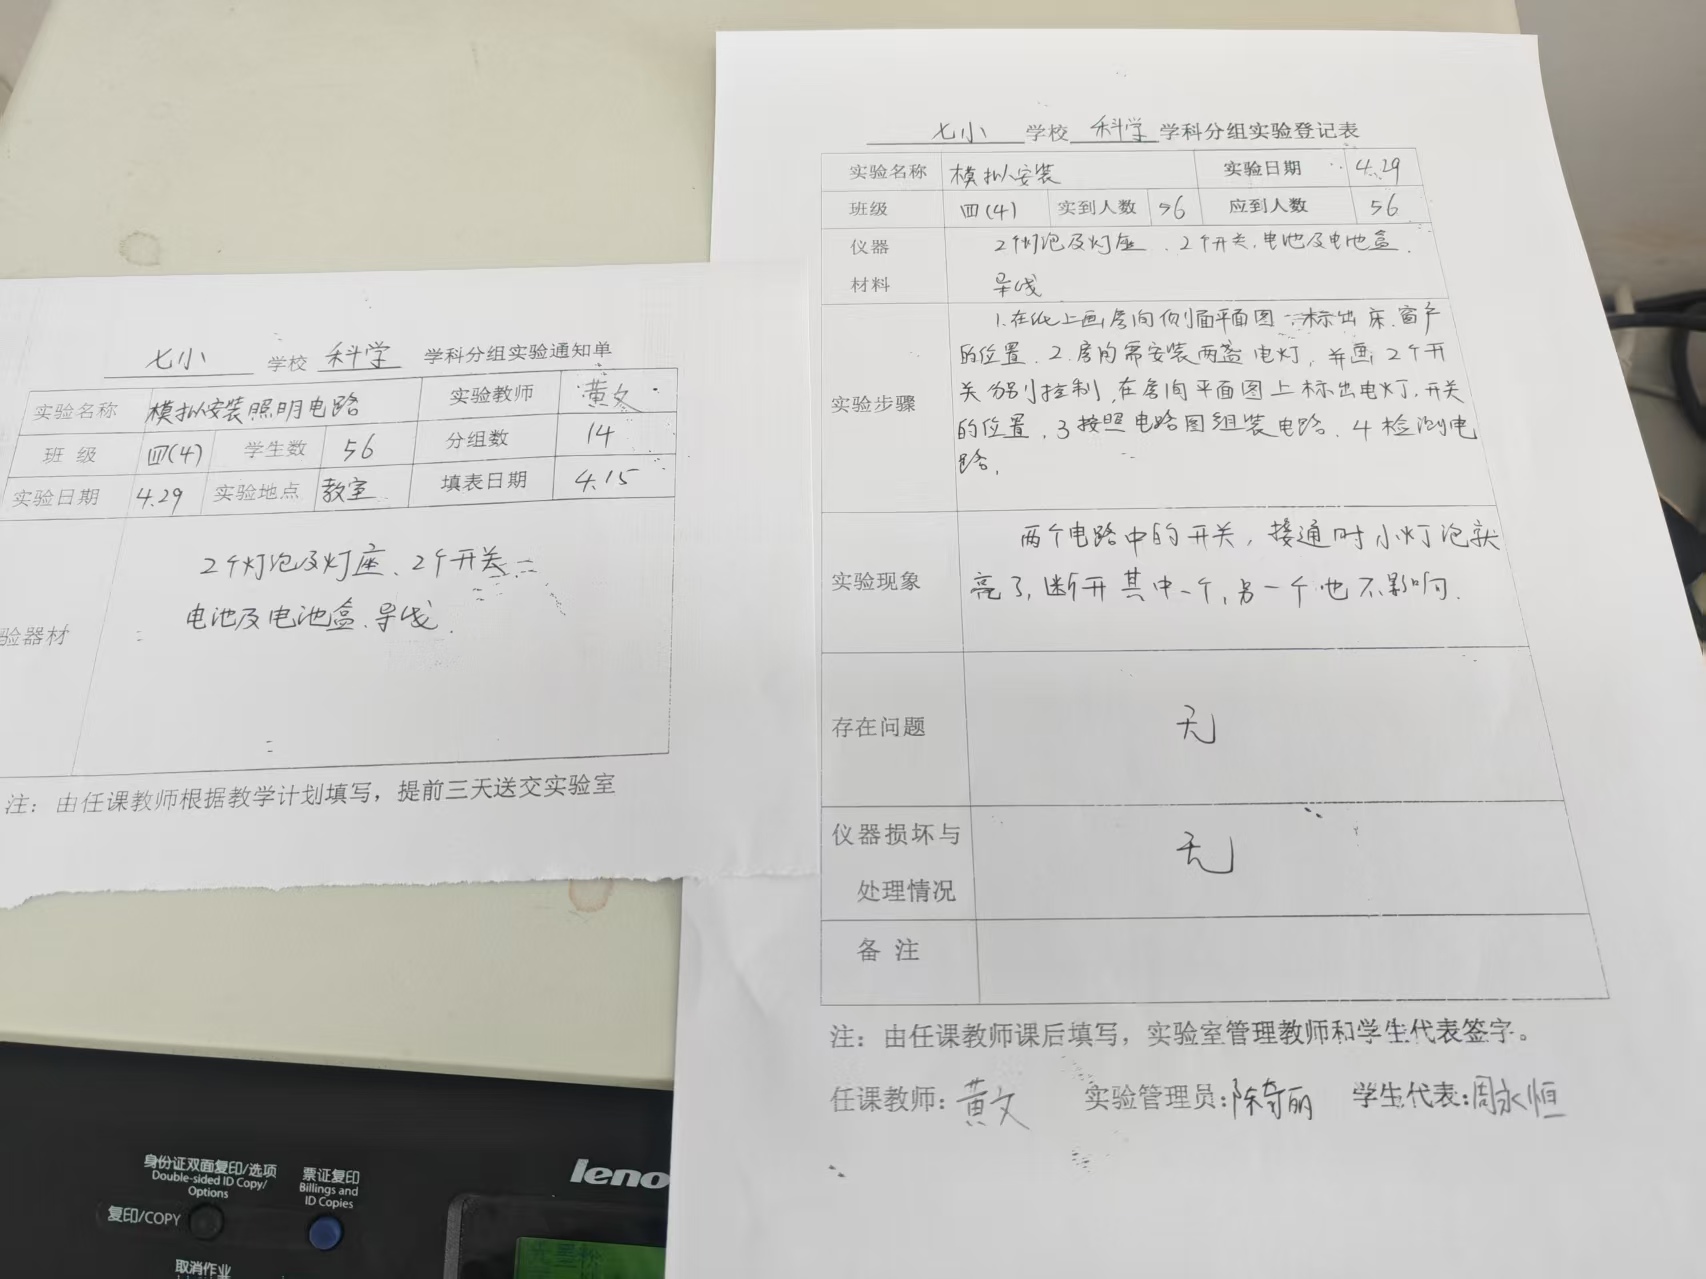 七小 学校 科学 学科分组实验通知单
实验名称 模拟安装照明电路 实验教师 黄文
班 级 四(4) 学生数 56 分组数 14
实验日期 4.29 实验地点 教室 填表日期 4.15
验器材 2个灯泡及灯座、2个开关
电池及电池盒、导线.
注：由任课教师根据教学计划填写，提前三天送交实验室
七小 学校 科学 学科分组实验登记表
实验名称 模拟安装 实验日期 4.29
班级 四(4) 实到人数 56 应到人数 56
仪器 2个灯泡及灯座、2个开关、电池及电池盒.
材料 导线
1.在纸上画房间侧面平面图 标出床、窗户
的位置. 2.房间需安装两盏电灯，并画2个开
实验步骤 关分别控制，在房间平面图上标出电灯，开关
的位置. 3按照电路图组装电路. 4检测电
路.
两个电路中的开关，接通时小灯泡就
实验现象 亮了，断开其中一个，另一个也不影响.
存在问题 无
仪器损坏与 无
处理情况
备 注
注：由任课教师课后填写，实验室管理教师和学生代表签字。
任课教师：黄文 实验管理员：陈奇丽 学生代表：周永恒
身份证双面复印/选项
Double-sided ID Copy/
Options
票证复印
Billings and
ID Copies
复印/COPY
取消作业
leno